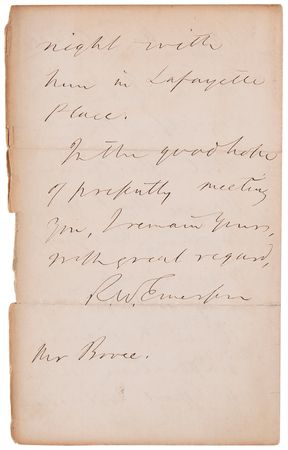 night with
him in Lafayette
Place.
In the good hope
of presently meeting
you, I remain Yours,
with great regard,
R. W. Emerson
Mr Bovee.